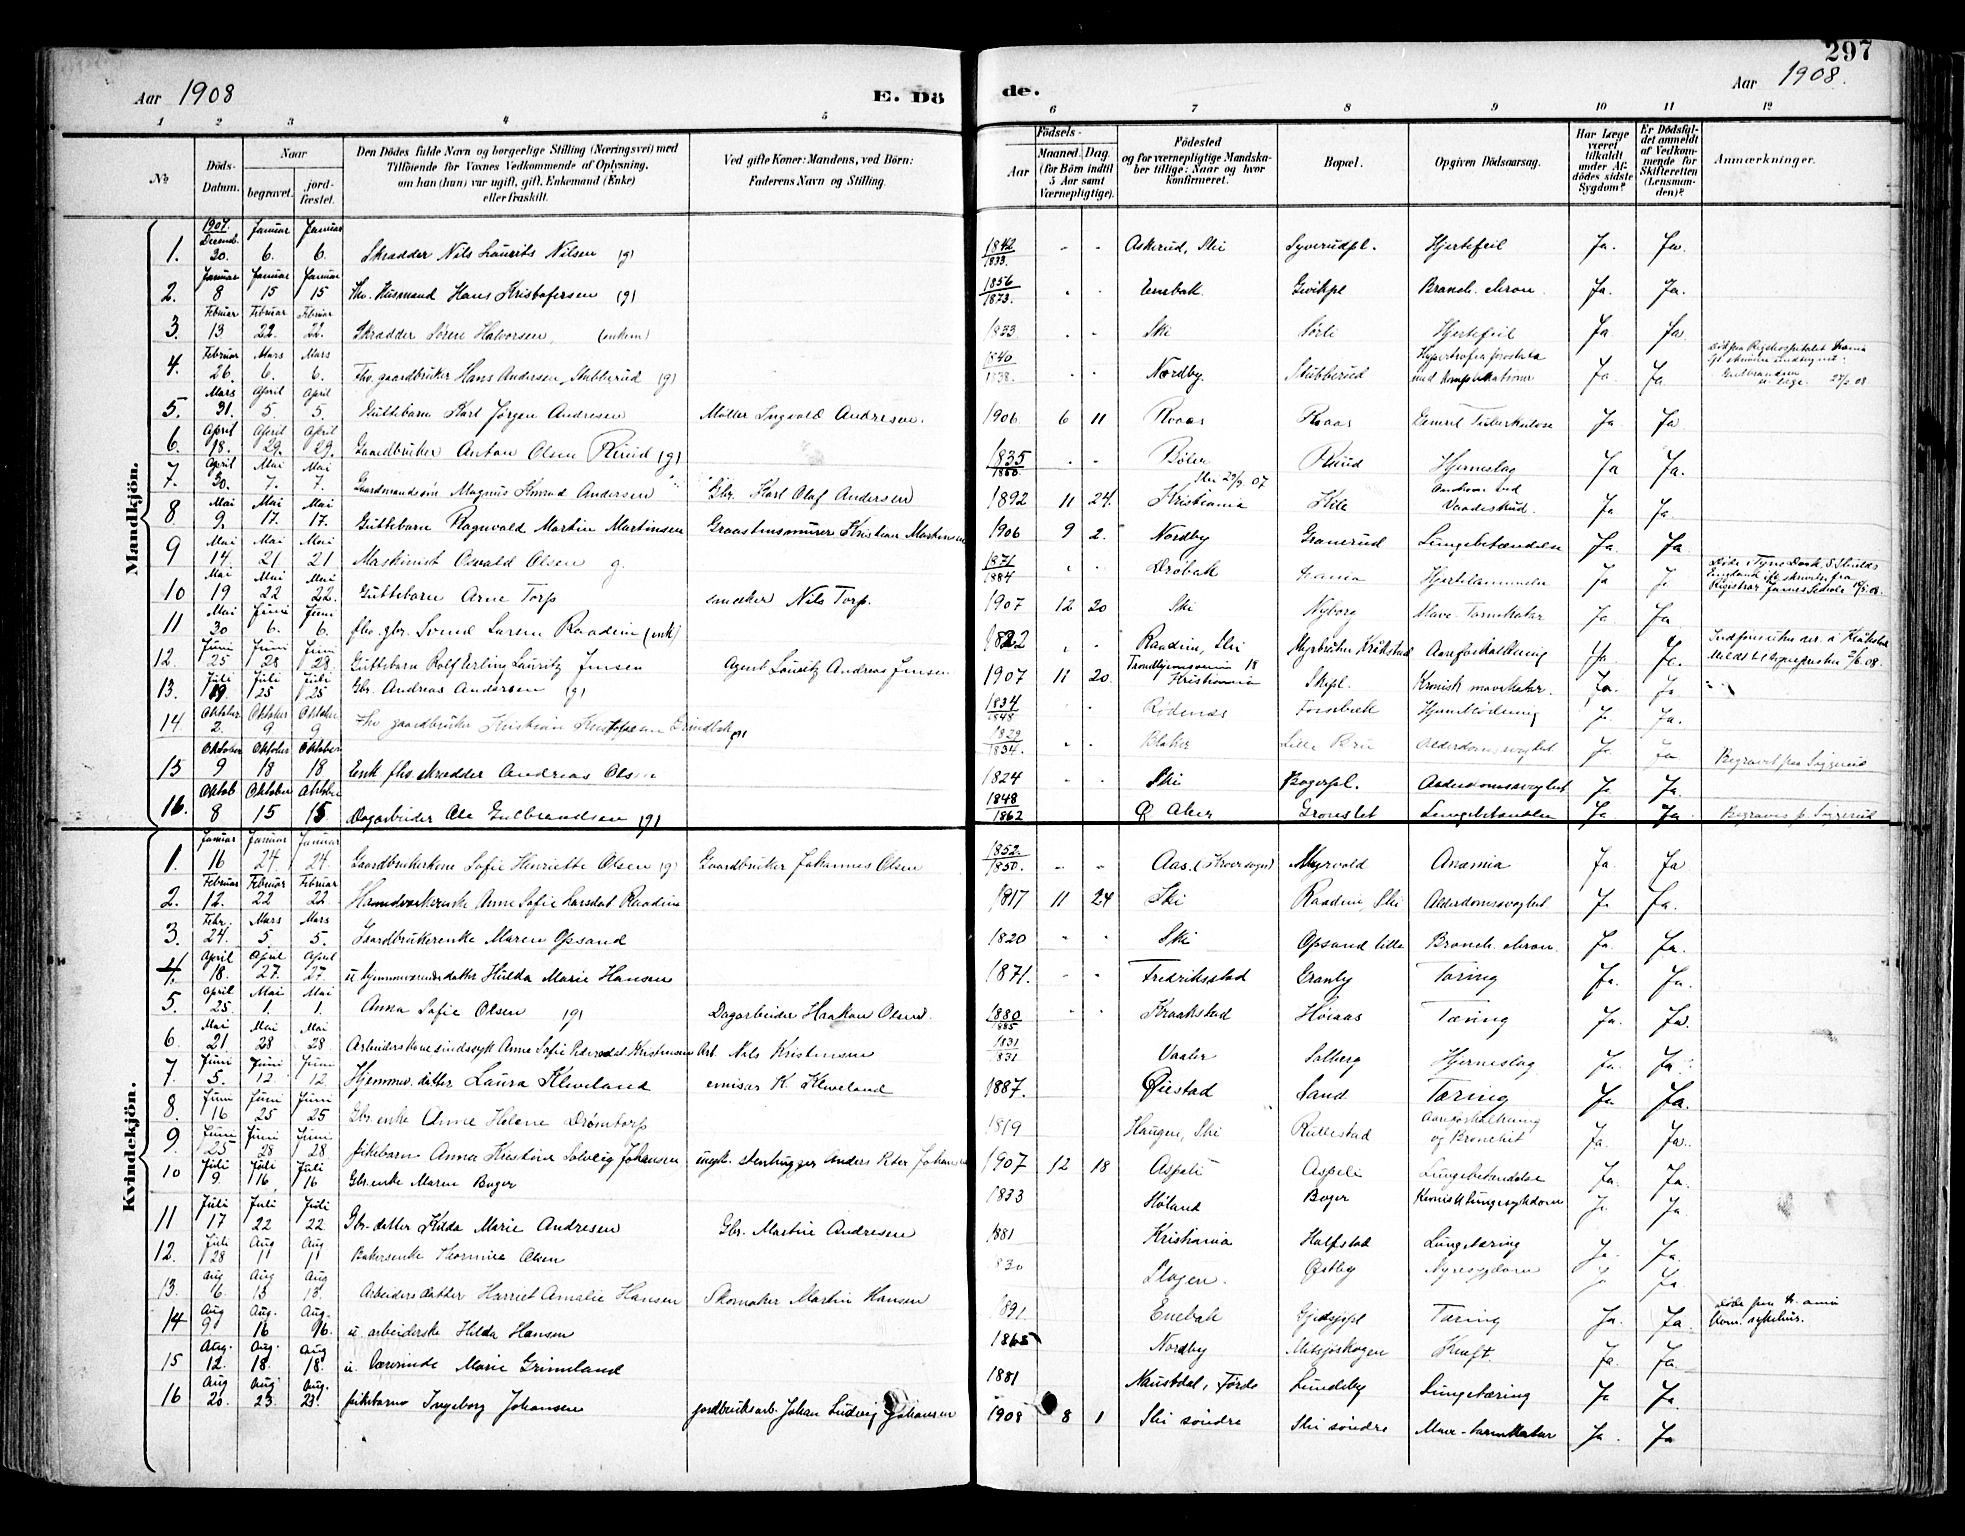 297
Aar 1908
E. Dö
de.
Aar 1908.
1 2 3 4 5 6 7 8 9 10 11 12
No
Döds-Datum.
Naar
begravet.
jordfæstet.
Den Dödes fulde Navn og borgerlige Stilling (Næringsvei) med
Tilföiende for Voxnes Vedkommende af Oplysning,
om han (hun) var ugift, gift, Enkemand (Enke)
eller fraskilt.
Ved gifte Koner: Mandens, ved Börn:
Faderens Navn og Stilling.
Födsels-
Aar
Maaned. Dag.
(for Börn indtil
5 Aar samt
Værnepligtige).
Födested
og for værnepligtige Mandska-
ber tillige: Naar og hvor
konfirmeret.
Bopæl.
Opgiven Dödsaarsag.
Har Læge
været
tilkaldt
under Af-
dödes sidste
Sygdom?
Er Dödsfal-
det anmeldt
af Vedkom-
mende for
Skifteretten
(Lensman-
den)?
Anmærkninger.
Mandkjön.
1. 1907. Decemb. 30. Januar 6. Januar 6. Skrædder Nils Laurits Nilsen (g) 1842 1833. - - Askerud, Ski Syverudpl. Hjertefeil Ja. Ja
2. Januar 8 Januar 15 Januar 15 Fhv. Husmand Hans Kristofersen (g) 1856 1873. Enebak Gvikpl Bronch. chron. Ja. Ja.
3. Februar 13 Februar 22. Februar 22. Skrædder Sören Halvorsen, (enkem) 1833 Ski Sörli Hjertefeil Ja Ja
4. Februar 26. Mars 6. Mars 6. Fhv. gaardbruker Hans Andersen Stubberud (g) 1840 1838. Nordby Stubberud Hypertrofia prostata med komplikationer Ja. Ja. Død paa Rigshospitalet
5. Mars 31. April 5. April 5. Guttebarn Karl Jörgen Andresen Möller Ingvald Andresen. 1906 6 11 Kraas Kraas Tuberkulose Ja Ja
6. April 18. April 29. April 29. Gaardbruker Anton Olsen Riud (g) 1835 1860 Böler Riud Hjerneslag Ja Ja.
7. April 30. Mai 7. Mai 7. Gaardmandssön Magnus Konrad Andersen Gbr. Karl Olaf Andersen 1892 11 24. Ski 29/9 07 Kristiania Hile Vaadeskud. Ja Ja.
8 Mai 9. Mai 17. Mai 17. Guttebarn Ragnvald Martin Martinsen Graastensmurer Kristian Martinsen 1906 9 2. Nordby Granerud Lungebetændelse Ja Ja
9 Mai 14 Mai 21 Mai 21 Maskinist Osvald Olsen g. 1871 1884 Dröbak Hjertelammelse Ja Døde i Tyne Dock, S. Shields England
10 Mai 19 Mai 22 Mai 22. Guttebarn Arne Torp snedker Nils Torp. 1907 12 20 Ski Nyborg Mave-Tarmkatar Ja. Ja.
11 Mai 30 Juni 6. Juni 6. fhv. gbr. Svend Larsen Raadim (enk) 1822 Raadim, Ski Kråkstad Aareforkalkning Ja. Ja.
12. Juni 25 Juni 28 Juni 28. Guttebarn Rolf Erling Lauritz Jensen Agent Lauritz Andreas Jensen 1907 11 20. Trondhjemsveien 18 Kristiania Skipl. Kronisk mavekatar. Ja. Ja
13. Juli 19. Juli 25 Juli 25 Gbr. Andreas Andersen (g) 1834 1848 Rödenes Fossbæk Hjerneblödning Ja. Ja.
14. Oktober 2. Oktober 9 Oktober 9 Fhv. gaardbruker Kristian (g) 1829 1834. Blaker Lille Bru Alderdomssvaghet Ja. Ja Begravet paa Siggerud
15 Oktober 9 Oktober 18 Oktober 18 Enk. fhv. skrædder Andreas Olsen 1824 Ski Bogerpl. Alderdomssvaghet Ja Ja.
16. Oktob 8 Oktober 15 Oktober 15 Dagarbeider Ole Gulbrandsen (g) 1848 1862 Ö. Aker Gronslet Lungebetændelse Ja Ja Begraves p. Siggerud
Kvindekjön.
1. Januar 16 Januar 24. Januar 24 Gaardbrukerkone Sofie Henriette Olsen (g) Gaardbruker Johannes Olsen 1852. 1850. - - Aas. (Kroersogn) Myrvold Anæmia Ja. Ja
2. Februar 12. Februar 22 Februar 22 Anne Sofie Larsdat Raadim 1817 11 24 Ski Raadim, Ski Alderdomssvaghet Ja Ja.
3. Febr. 24. Mars 5. Mars 5. Gaardbrukerenke Maren Opsand 1820 - - Ski Opsand lille Bronch. chron. Ja. Ja.
4. April 18. April 27. April 27 u. hjemmeværende datter Hulda Marie Hansen 1871. - - Fredriksstad Granby Tæring Ja. Ja.
5. April 25 Mai 1. Mai 1. Anna Sofie Olsen (g) Dagarbeider Haakon Olsen. 1880 1885 Kraakstad Höiaas Tæring Ja. Ja.
6. Mai 21 Mai 28 Mai 28. Arbeiderskone sindssyk Anne Sofie Pedersdat Kristensen Arb. Nils Kristensen 1831 1831 Vaaler Solberg Hjerneslag Ja. Ja.
7. Juni 5. Juni 12. Juni 12. Hjemmev. datter Laura Kleveland emisær K. Kleveland 1887. Öiestad Sand Tæring Ja Ja.
8. Juni 16 Juni 25 Juni 25 Gbr. enke Anne Helene Drömtorp 1819 Haugen, Ski Rullestad Aareforkalkning og Bronchit Ja. Ja.
9. Juni 25 Juni 28 Juni 28 Pikebarn Anna Kristine Solveig Johansen ugift. stenhugger Anders Peter Johansen 1907 12 18 Aspeli Aspeli Lungebetændelse Ja. Ja.
10 Juli 9 Juli 16 Juli 16 Gbr. enke Maren Boger 1833 Höland Boger Kronisk lungesygdom Ja. Ja.
11 Juli 17 Juli 22 Juli 22 Gbr. datter Hilda Marie Andresen Gbr. Martin Andresen 1881 Kristiania Halfstad Lungetæring Ja. Ja.
12. Juli 28 Aug 1 Aug 1 Bakerenke Olsen 1830 Slagen. Östby Nyresygdom Ja. Ja.
13. Aug 6. Aug 13 Aug 13 Arbeiders datter Harriet Amalie Hansen Skomaker Martin Hansen 1891. Enebak Gjedsjöpl Tæring Ja. Ja. Døde paa Kom. sykehus.
14 Aug 9 Aug. 16 Aug. 16. u. arbeiderske Hilda Hansen 1865 Nordby Kræft. Ja. Ja.
15 Aug. 12. Aug. 18. Aug 18. u. Værerinde Marie Grimeland 1881 Naustdal, Förde Lundeby Lungetæring Ja Ja.
16 Aug 20. Aug 23 Aug. 23. Pikebarn Ingeborg Johansen jordbruksarb. Johan Ludvig Johansen 1908 8 1 Ski söndre Ski söndre Mave-tarmkatar Ja. Ja